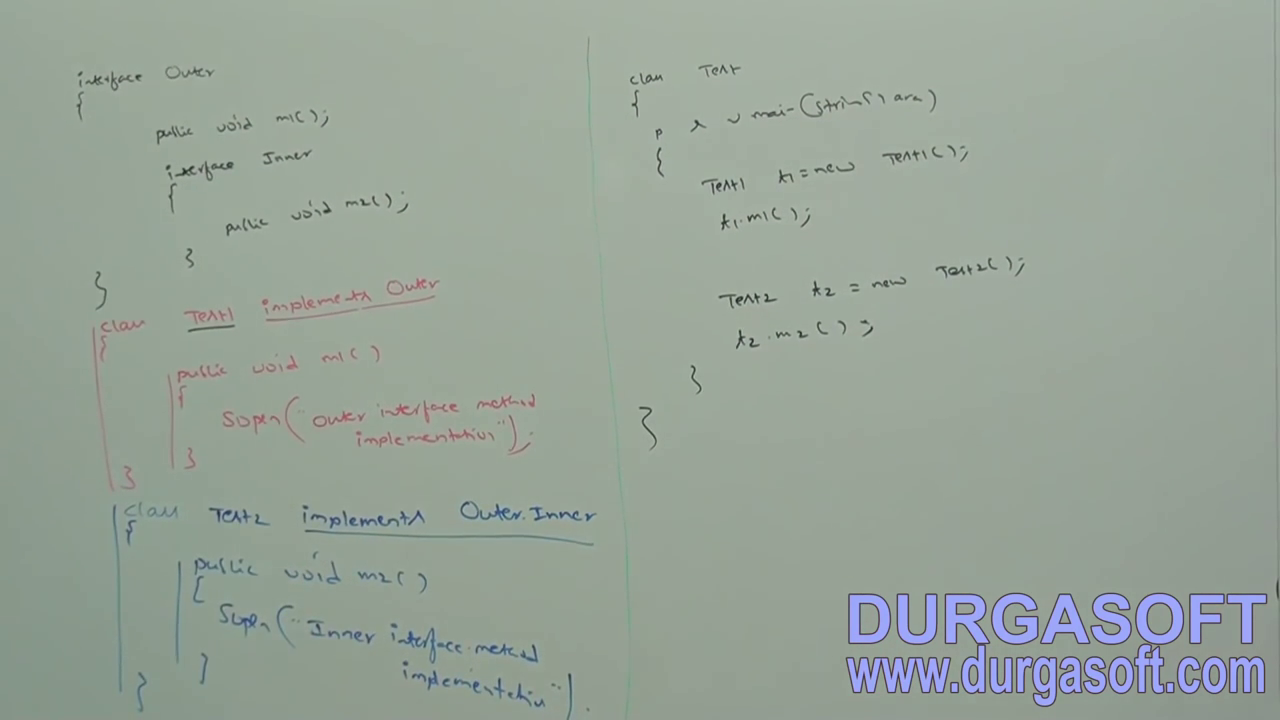 interface Outer
{
public void m1();
interface Inner
{
public void m2();
}
}
class Test1 implements Outer
{
public void m1()
{
Sopln("Outer interface method
implementation");
}
}
class Test2 implements Outer.Inner
{
public void m2()
{
Sopln("Inner interface method
implementation").
}
}
class Test
{
p s v main(String[] args)
{
Test1 t1 = new Test1();
t1.m1();
Test2 t2 = new Test2();
t2.m2();
}
}
DURGASOFT
www.durgasoft.com